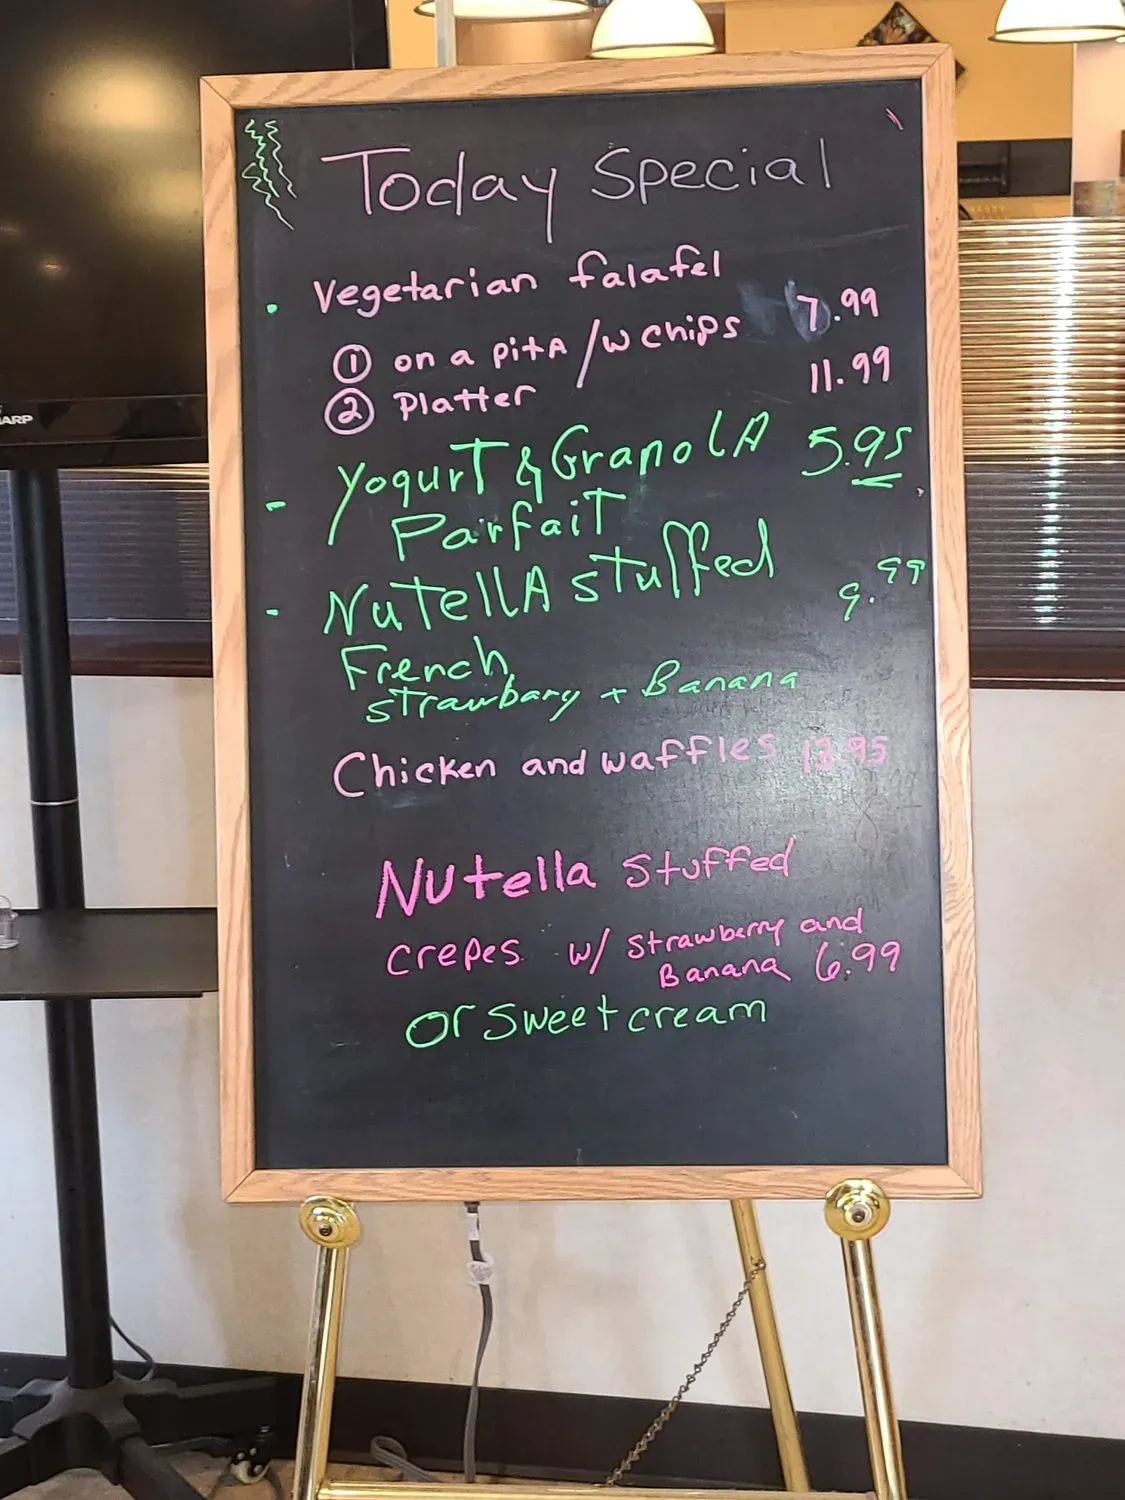 Today Special
· Vegetarian falafel
① on a pitA /w chips 7.99
② Platter 11.99
- YogurT & GranolA 5.95
ParfaiT
- NuTellA sTuffed 9.99
French
sTrawbary + Banana
Chicken and waffles 13.95
Nutella stuffed
crepes w/ strawberry and
Banana 6.99
or sweet cream
ARP